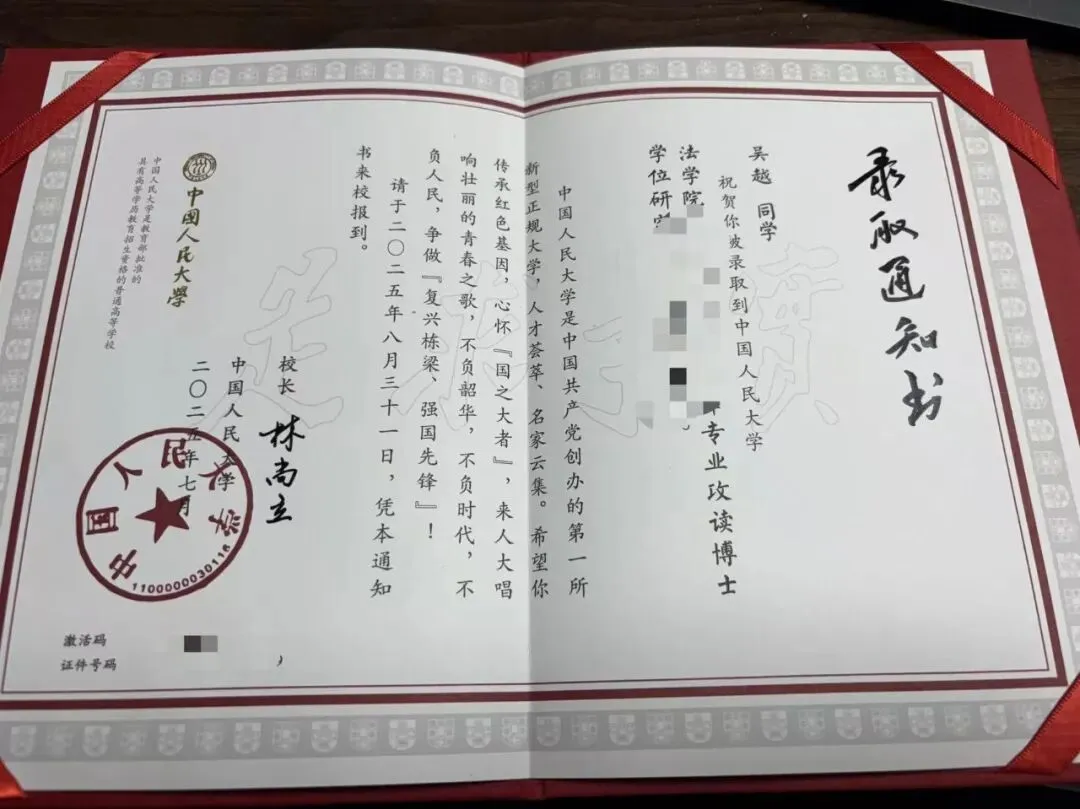 录取通知书
吴越 同学
祝贺你被录取到中国人民大学
法学院 专业攻读博士
学位研究
中国人民大学是中国共产党创办的第一所
新型正规大学，人才荟萃、名家云集。希望你
传承红色基因，心怀『国之大者』，来人大唱
响壮丽的青春之歌，不负韶华，不负时代，不
负人民，争做『复兴栋梁、强国先锋』！
请于二〇二五年八月三十一日，凭本通知
书来校报到。
校长 林尚立
中国人民大学
二〇二五年七月
中国人民大学
1100000030116
中国人民大学
中国人民大学是教育部批准的
具有高等学历教育招生资格的普通高等学校
激活码
证件号码